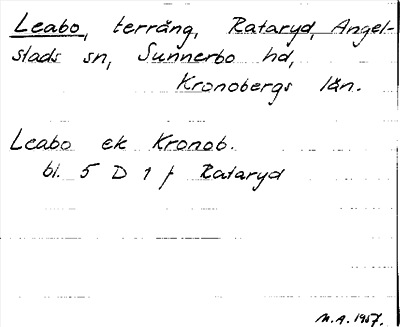 Leabo, terräng, Rataryd, Angel-
stads sn, Sunnerbo hd,
Kronobergs län.
Leabo ek Kronob.
bl. 5 D 1 f Rataryd
M.A. 1957.